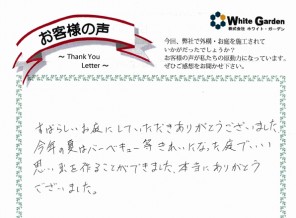 お客様の声
～ Thank You Letter ～
White Garden
株式会社 ホワイト・ガーデン
今回、弊社で外構・お庭を施工されて
いかがだったでしょうか？
お客様の声が私たちの原動力になっています。
ぜひご感想をお聞かせ下さい。
すばらしいお庭にしていただきありがとうございました
今年の夏はバーベキュー等きれいになった庭でいい
思い出を作ることができました、本当にありがとう
ございました。